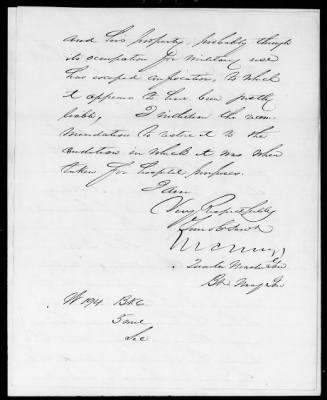 and his property, probably through
its occupation for military use
has escaped confiscation, to which
it appears to have been justly
liable, I the recom-
mendation to restore it to the
condition in which it was when
taken for hospital purposes.
I am
Very Respectfully
Your Obt Servt
Quarter Master Genl
Bt Maj Gen
W 194 BKC